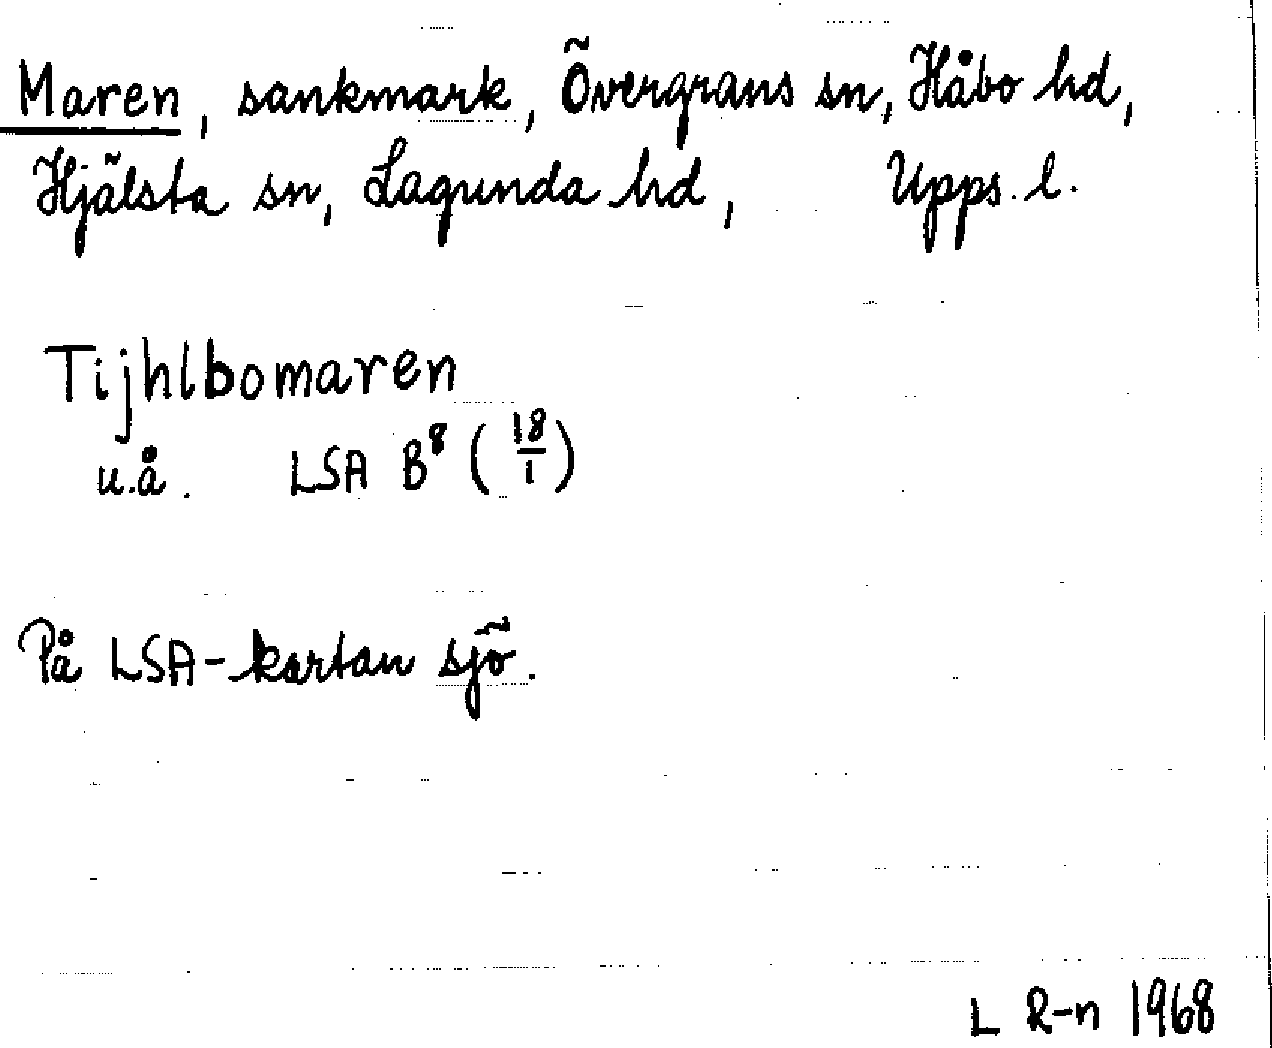 Maren, sankmark, Övergrans sn, Håbo hd,
Hjälsta sn, Lagunda hd, Upps. l.
Tijhlbomaren
u.å. LSA B⁸ (18/1)
På LSA-kartan sjö.
L R-n 1968